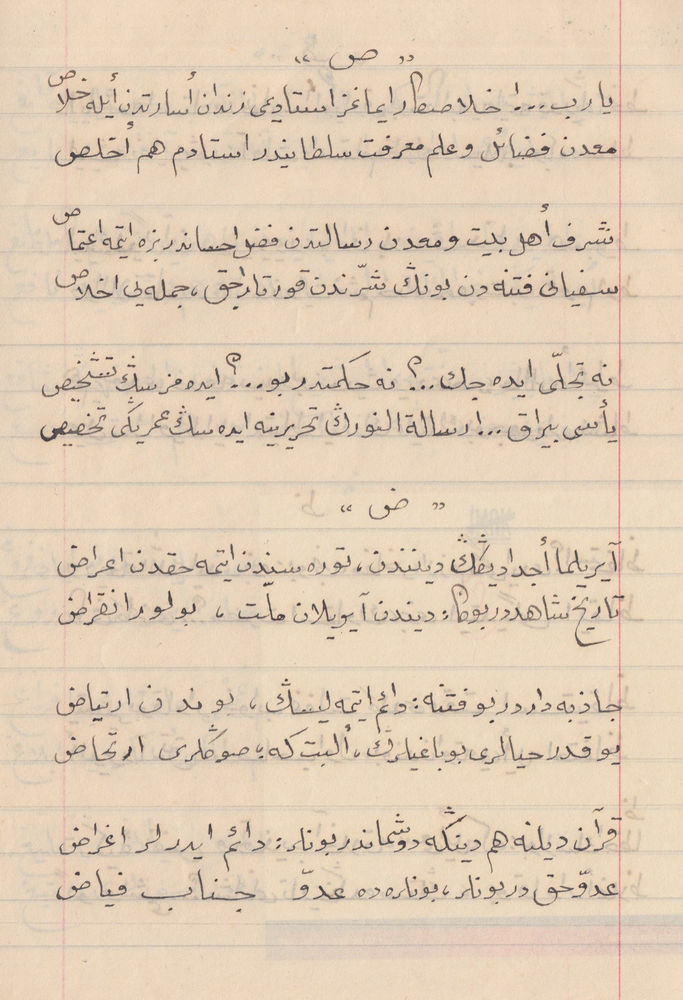 « ص »
يارب...! خلاصكار ايمانمز استاديمى زندان أسارتدن أيله خلاص
معدن فضائل و علم معرفت سلطانيدر استادم هم أخلص
شرف أهل بيت و معدن رسالتدن فضل احساندر بزه ايتمه اعتماص
سفيانى فتنه دن بونڭ شرّندن قورتاراجق، جمله يى اخلاص
نه تجلّى ايده جك...؟ نه حكمتدر بو...؟ ايده مزسڭ تشخيص
يأسى بيراق...! رسالة النورڭ تحريرينه ايده سڭ عمريڭى تخصيص
« ض »
آيريلما أجداديڭڭ ديننـدن، توره سيندن ايتمه حقدن اعراض
تاريخ شاهددر بوڭا: ديندن آيريلان ملّت، بولور انقراض
جاذبه داردر بو فتنه: دائم ايتمه ليسڭ، بوندن ارتياض
يوقدر حيالرى بو باغيلرڭ، ألبت كه؛ صوڭلرى ارتحاض
قرآن ديلنه هم دينڭه دوشماندر بونلر: دائم ايدرلر اغراض
عدوّ حق در بونلر، بونلره ده عدوّ جناب فياض